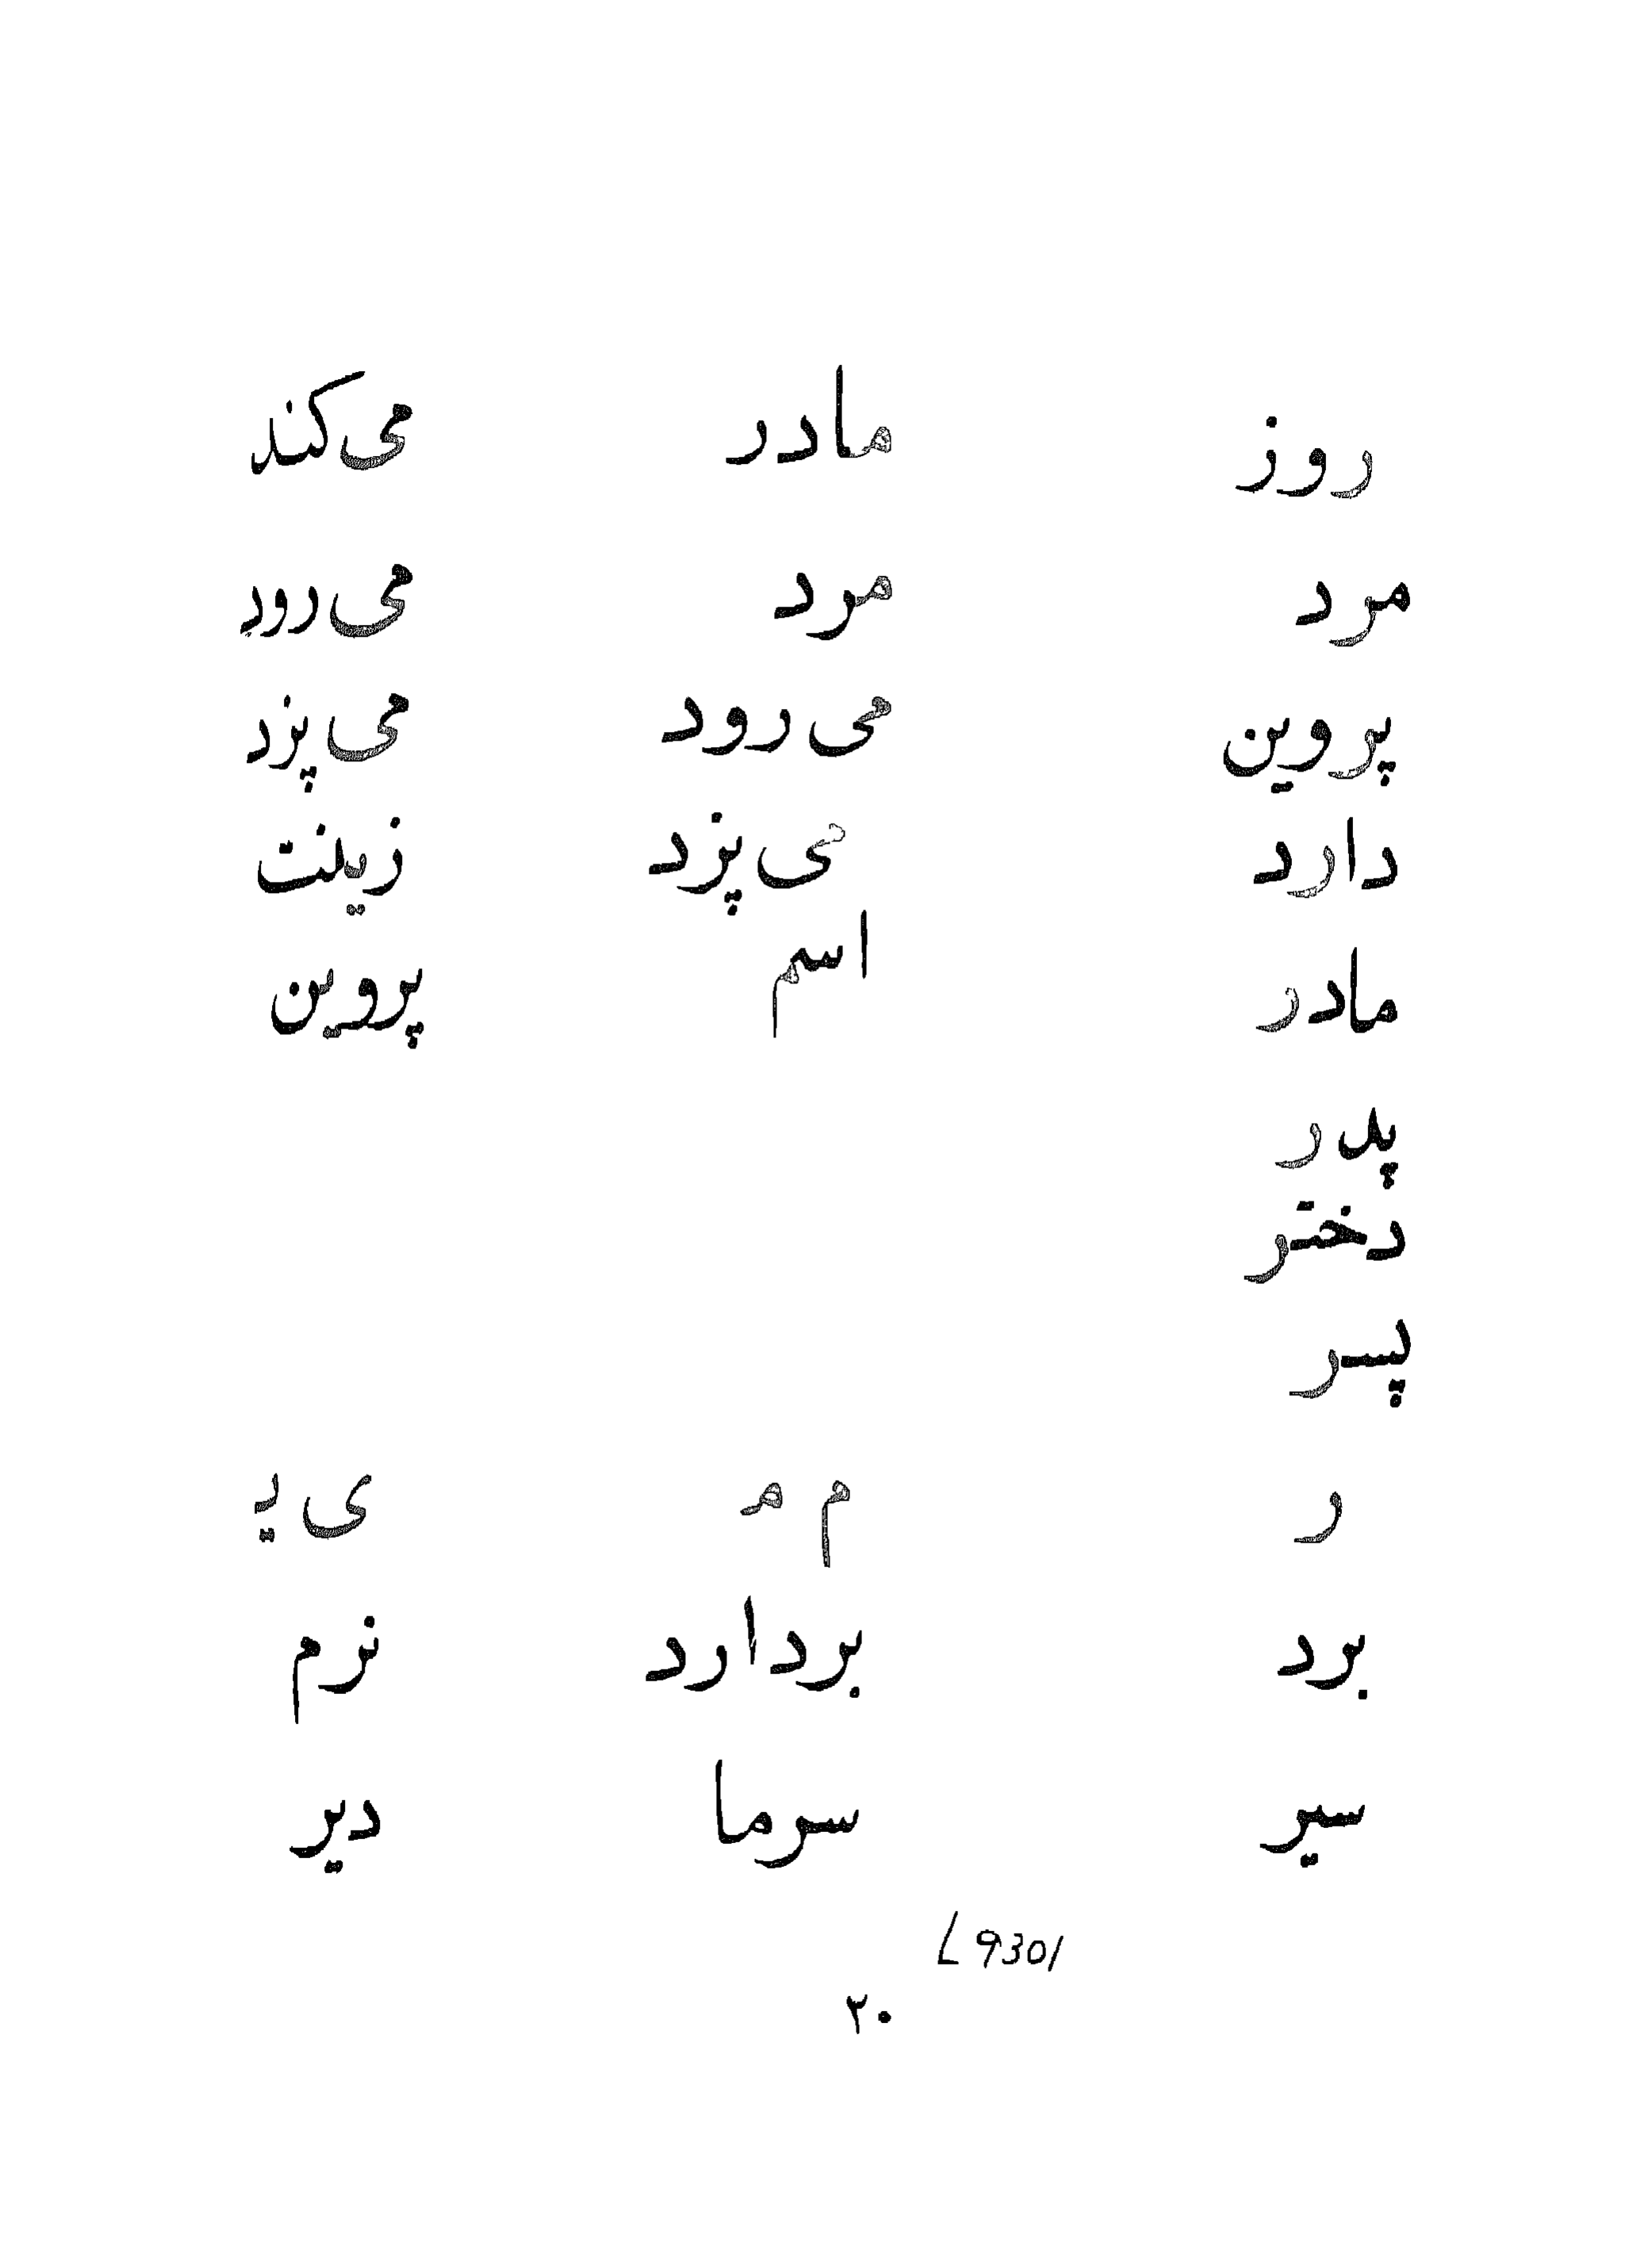 روز مادر می‌کند
مرد مرد می‌رود
پروین می‌رود می‌پزد
دارد می‌پزد زینت
مادر اسم پروین
پدر
دختر
پسر
ر م مـ ی یـ
برد بردارد نرم
سیر سرما دیر
L9301
۲۰